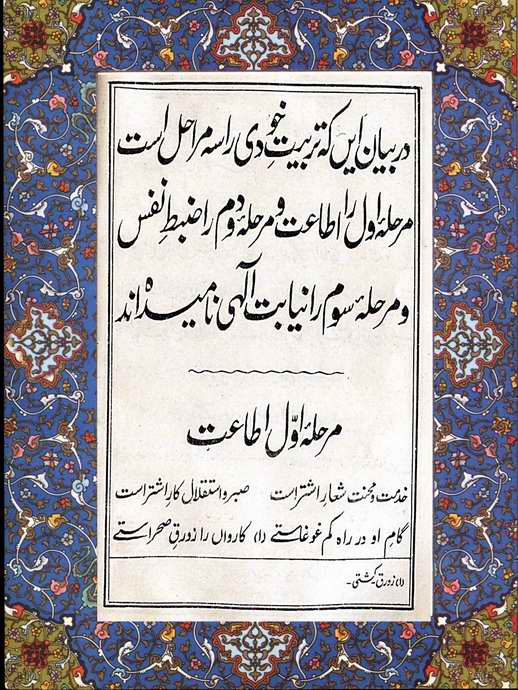 در بیان این که تربیتِ خودی را سه مراحل است
مرحلهٔ اول را اطاعت و مرحلهٔ دوم را ضبطِ نفس
و مرحلهٔ سوم را نیابت الٰہی نامیدہ اند
مرحلهٔ اوّل اطاعت
خدمت و محنت شعارِ اشتر است صبر و استقلال کارِ اشتر است
گامِ او در راہ کم غوغاستے (۱) کارواں را زورقِ صحراستے
(۱) زورق ـ کشتی ـ